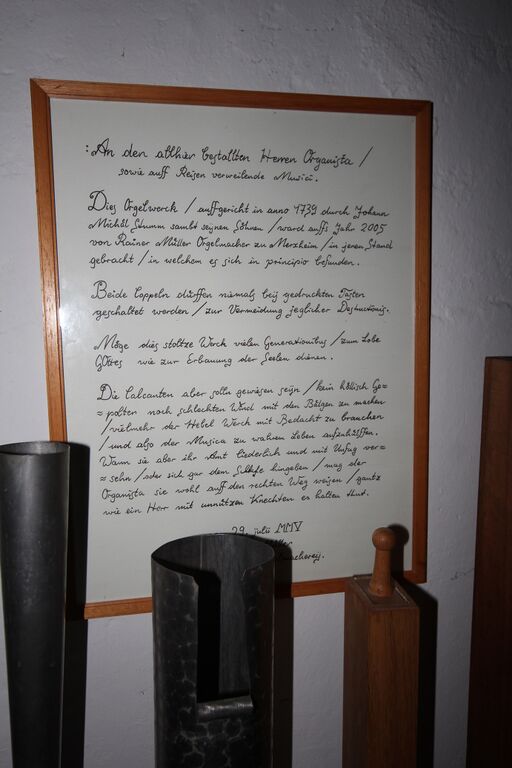 :An den allhier bestallten Herren Organista /
sowie auff Reisen verweilende Musici.
Dies Orgelwerck / auffgericht in anno 1739 durch Johann
Michël Stumm sambt seynen Söhnen / ward auffs Jahr 2005
von Rainer Müller Orgelmacher zu Merxheim / in jenen Stand
gebracht / in welchem es sich in principio befunden.
Beide Coppeln dürffen niemals beÿ gedruckten Tasten
geschaltet werden / zur Vermeidung jeglicher Destructionis.
Möge dies stoltze Werck vielen Generationibus / zum Lobe
GOttes wie zur Erbauung der Seelen dienen.
Die Calcanten aber solln gewiesen seÿn / kein höllisch Ge=
=polter noch schlechten Wind mit den Bälgen zu machen
/ vielmehr der Hebel Werck mit Bedacht zu brauchen
/ und also der Musica zu wahren Leben auffzuhälffen.
Wann sie aber ihr Amt liederlich und mit Unfug ver=
=sehn / oder sich gar dem Schlafe hingeben / mag der
Organista sie wohl auff den rechten Weg weisen / gantz
wie ein Herr mit unnützen Knechten es halten thut.
29. julii MMV